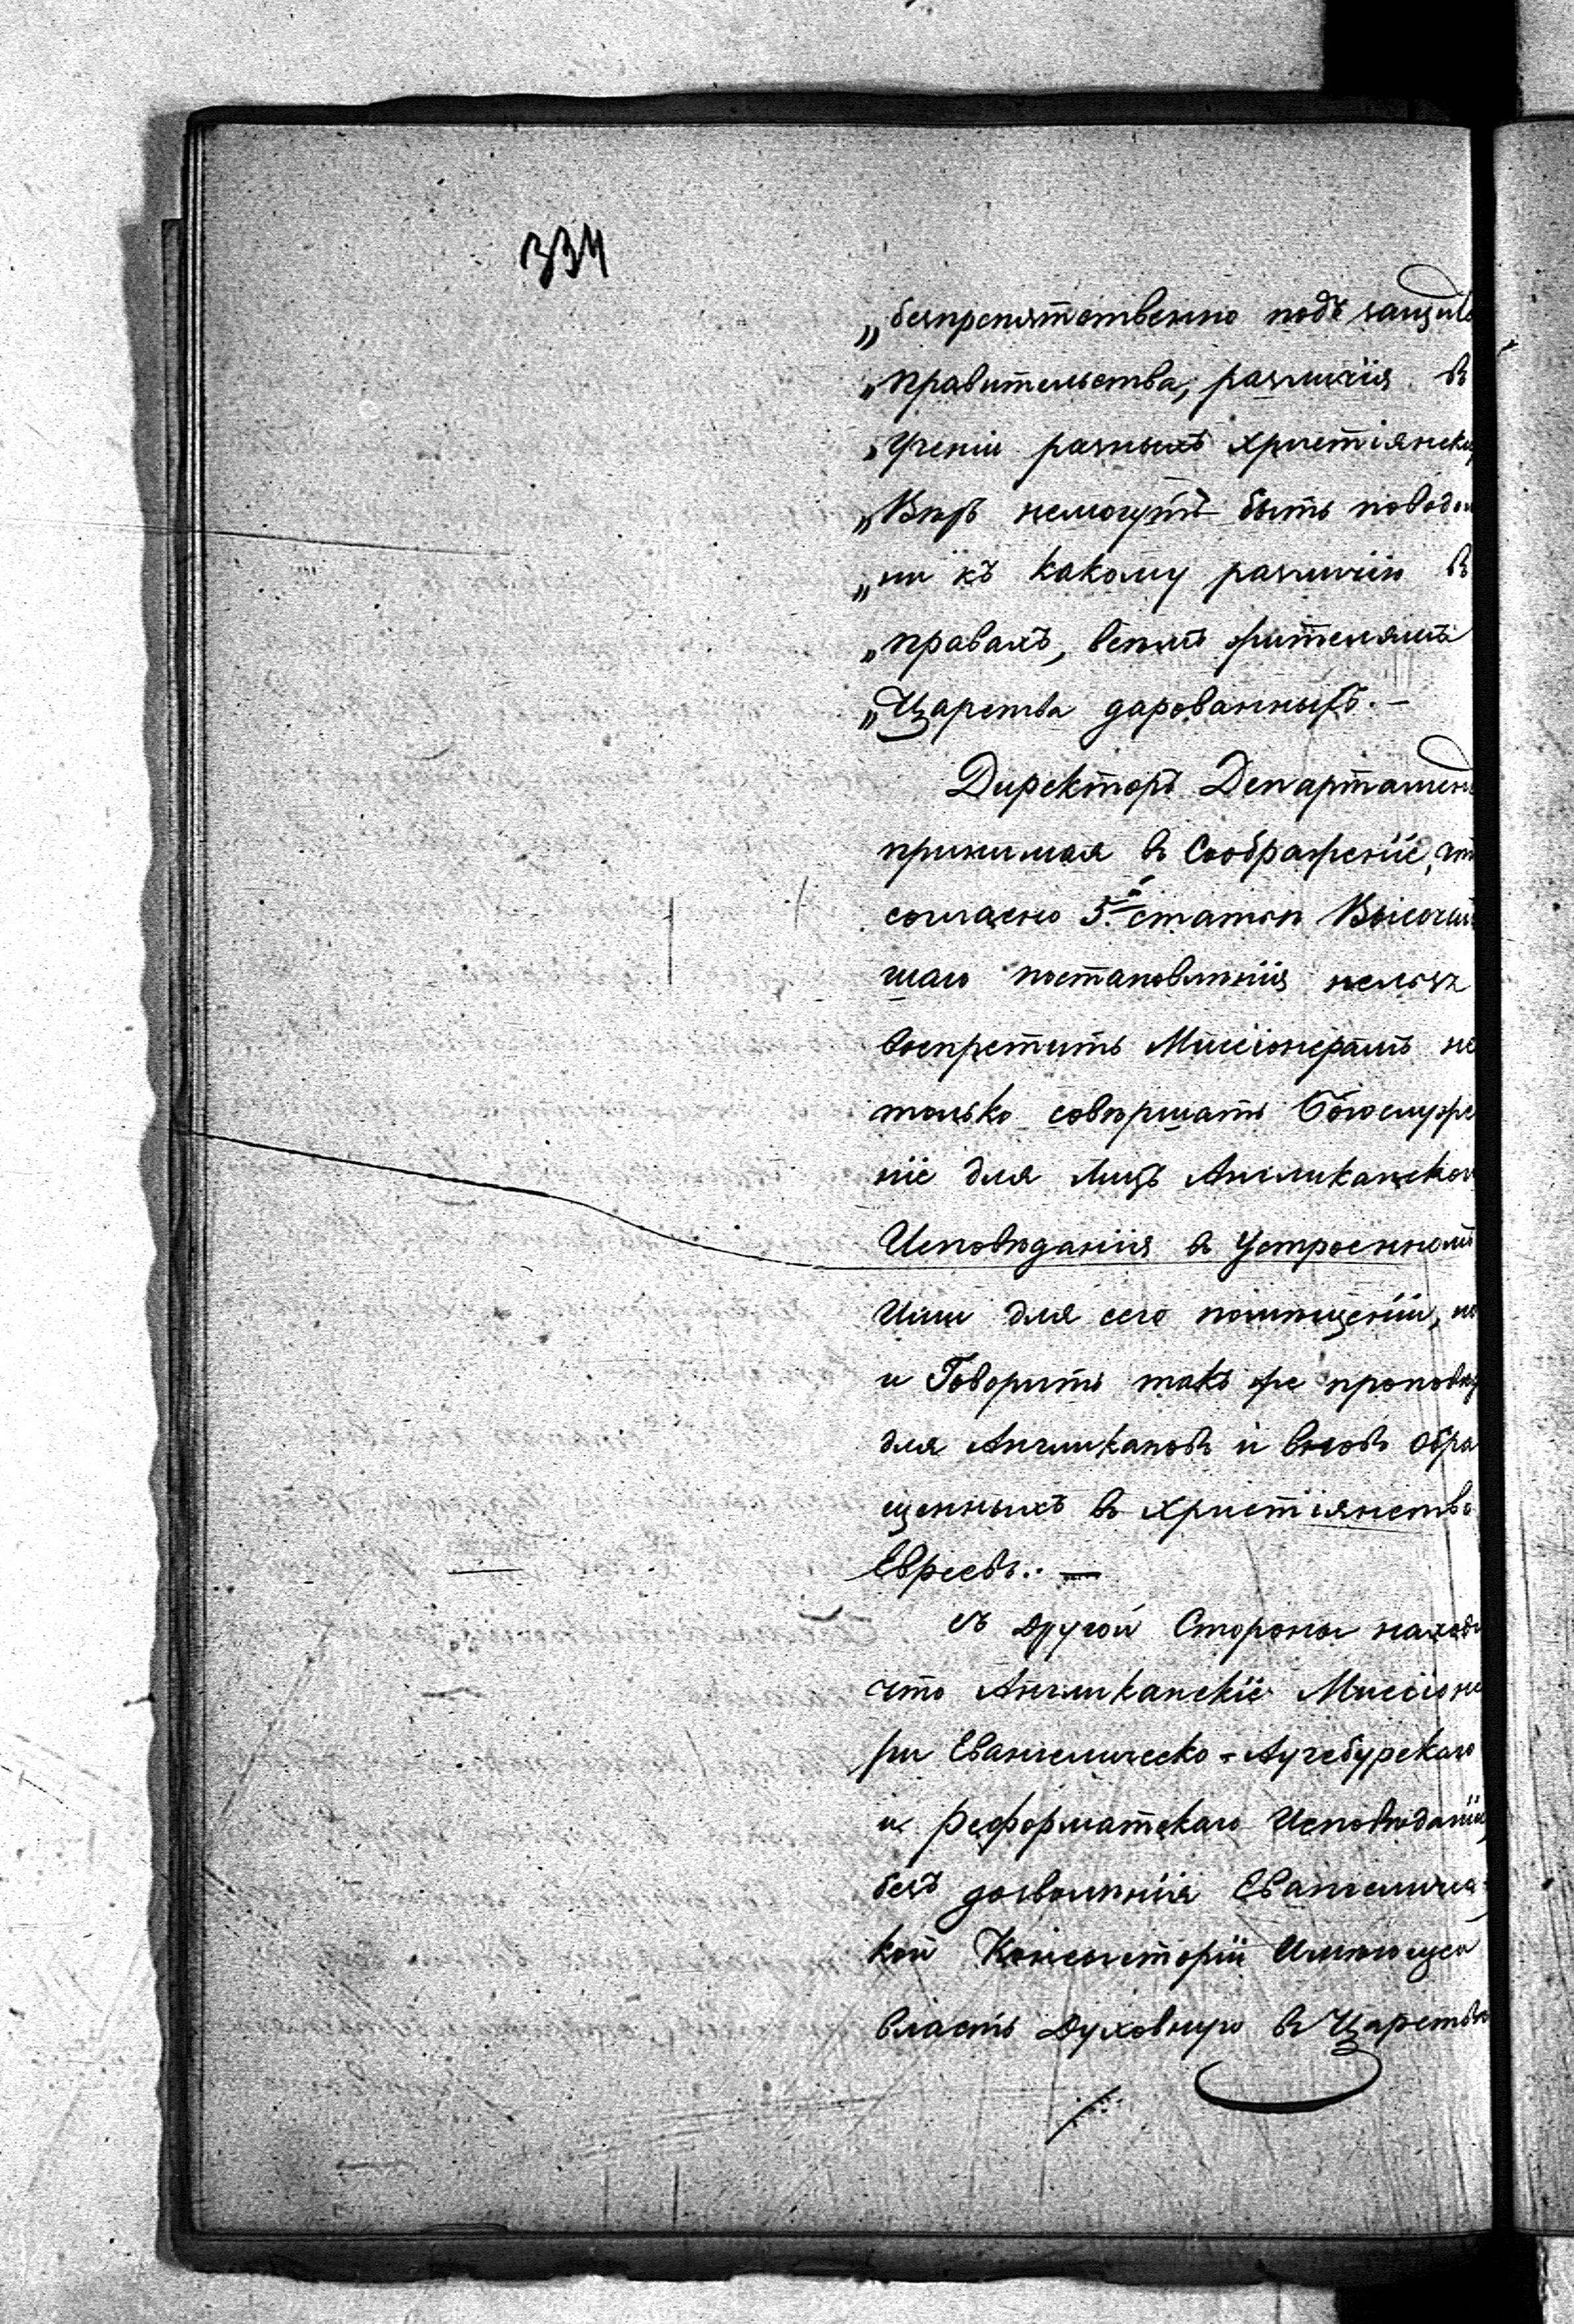 334
„безпрепятственно подъ защито
„правительства, различiя въ
„Ученiи разныхъ христiянски
„Вѣръ немогутъ быть поводом
„ни къ какому различiю въ
„правахъ, всѣмъ жителямъ
„Царства дарованныхъ. —
Директоръ Департамен
принимая въ Соображенiе, чт
согласно 5.й статьѣ Высочай
шаго постановленiя нельзя
воспретить Миссiонерамъ не
только совершать Богослуже
нiе для Лицъ Англиканской
Исповѣданiя въ Устроенномъ
Ими для сего помѣщенiи, но
и Говорить такъ же проповѣд
для Англикановъ и вновь Обра
щенныхъ въ Христiянство
Евреевъ. —
съ Другой Стороны находя
что Англиканскiе Миссiоне
ры Евангелическо-Аугсбурскаго
и Реформатскаго Исповѣданiй
безъ дозволенiя Евангеличес
кой Консысторiи Имѣющей
власть Духовную въ Царствѣ